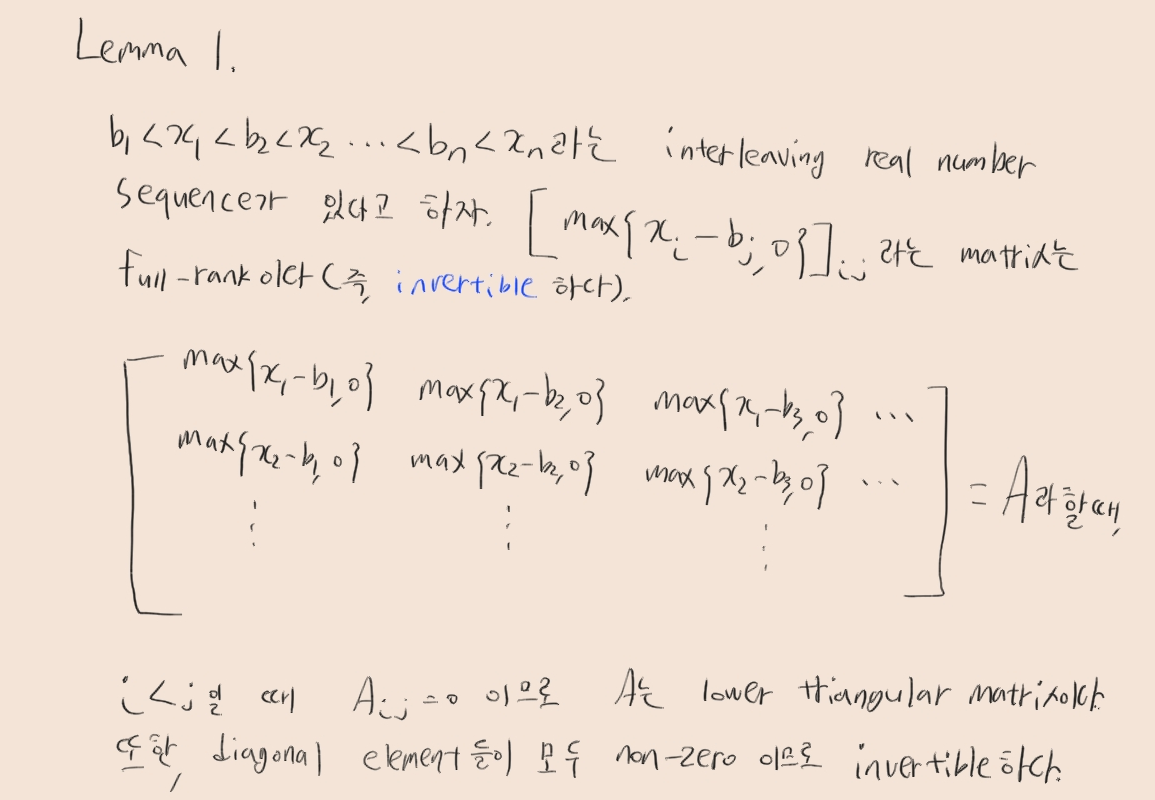 Lemma 1.
b₁ < x₁ < b₂ < x₂ ... < bₙ < xₙ 라는 interleaving real number
sequence가 있다고 하자. [max{xᵢ - bⱼ, 0}]ᵢ,ⱼ 라는 matrix는
full-rank 이다 (즉, invertible 하다).
max{x₁-b₁, 0} max{x₁-b₂, 0} max{x₁-b₃, 0} ...
max{x₂-b₁, 0} max{x₂-b₂, 0} max{x₂-b₃, 0} ...
= A라 할때,
⋮ ⋮ ⋮
i < j 일 때 Aᵢⱼ = 0 이므로 A는 lower triangular matrix이다.
또한, diagonal element 들이 모두 non-zero 이므로 invertible하다.